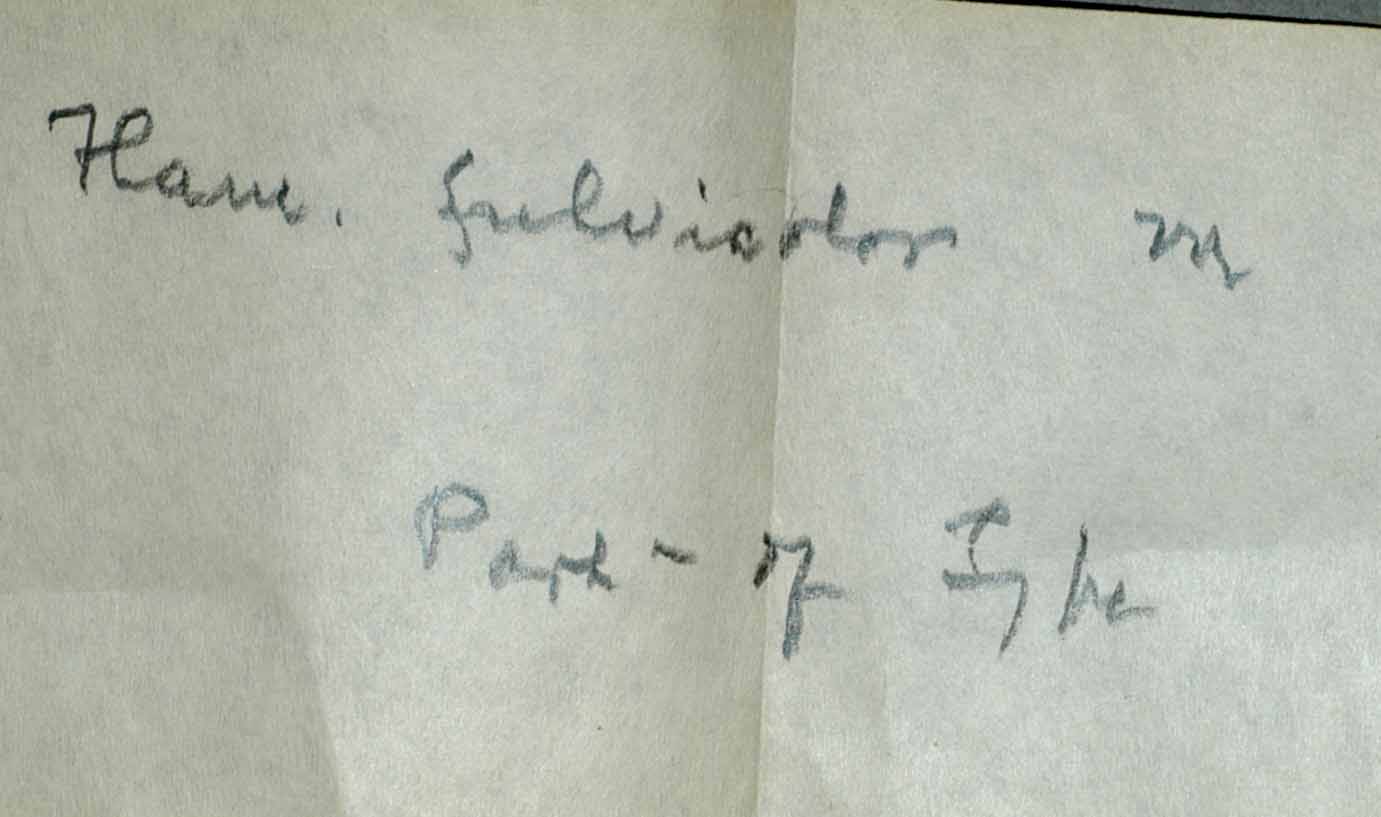 Ham. fulvicolor
Part of Type